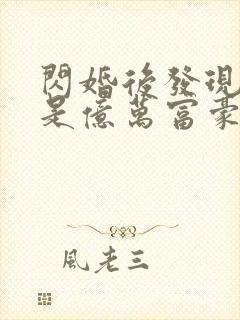 閃婚後發現
是億萬富豪
風老三